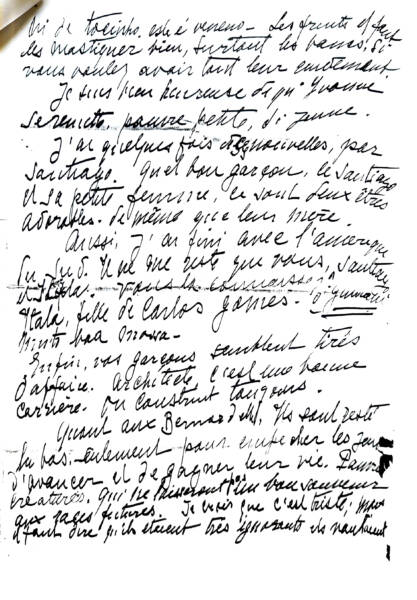 de tocinho, este é veneno - Les fruits il faut
les mastiquer bien, surtout les bananes, si
vous voulez avoir tout leur
Je suis bien heureuse de qu' Yvonne
se remette, pauvre petite, si jeune.
J'ai quelques fois des nouvelles, par
Santiago. Quel bon garçon, ce Santiago
et sa petite femme, ce sont deux êtres
adorables. De même que leur mère.
Aussi, j'ai fini avec l'amerique
du Sud. Il ne me reste que vous, Santiago
et Itala. Vous la connaissez
Itala, fille de Carlos Gomes.
Muito boa moça -
Enfin, vos garçons semblent tirés
d'affaire. Architecte, c'est une bonne
carrière. On construit toujours.
Quant aux Bernardelli, ils sont restés
là bas seulement pour empêcher les jeunes
d'avancer et de gagner leur vie. Pauvres
créatures, qui ne laisseront un bon souvenir
aux pages futures. Je crois que c'est triste, mais
il faut dire qu'ils étaient très ignorants ils